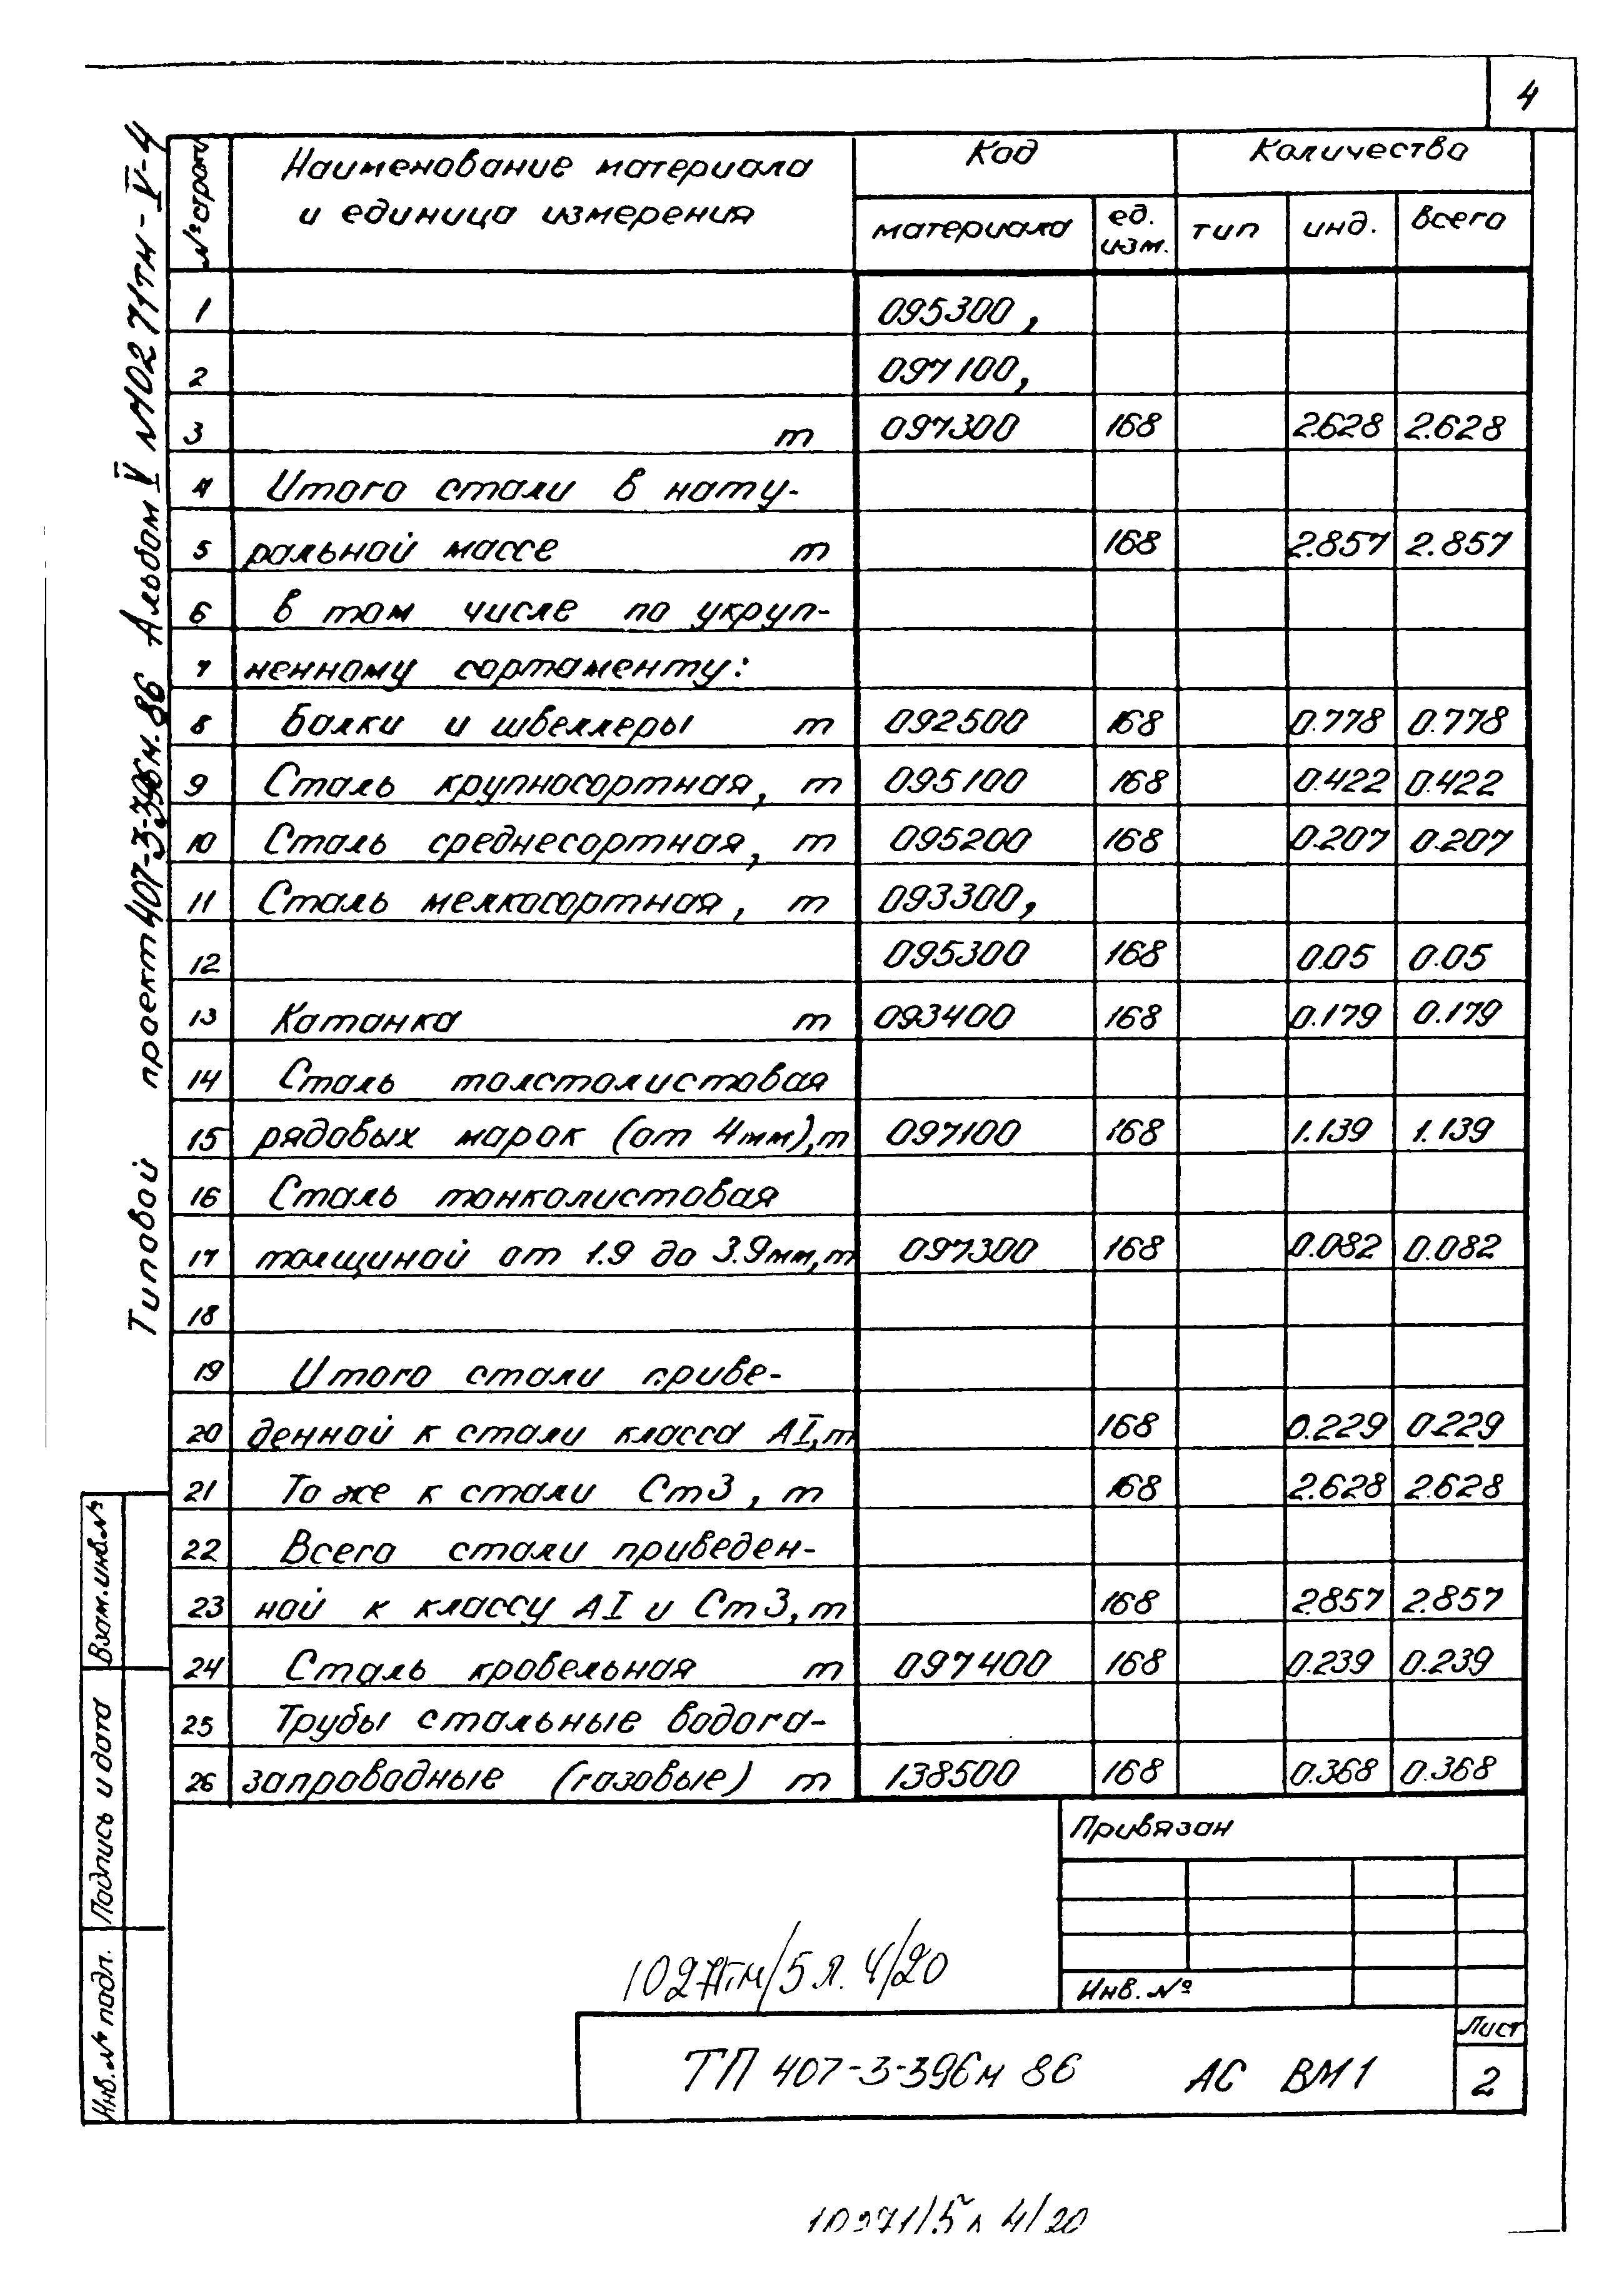 4
Типовой проект 407-3-396м.86 Альбом V №10271тм-V-4
№ строки Наименование материала и единица измерения Код Количество
материала ед. изм. тип инд. всего
1 095300,
2 097100,
3 т 097300 168 2.628 2.628
4 Итого стали в нату-
5 ральной массе т 168 2.857 2.857
6 в том числе по укруп-
7 ненному сортаменту:
8 Балки и швеллеры т 092500 168 0.778 0.778
9 Сталь крупносортная, т 095100 168 0.422 0.422
10 Сталь среднесортная, т 095200 168 0.207 0.207
11 Сталь мелкосортная, т 093300,
12 095300 168 0.05 0.05
13 Катанка т 093400 168 0.179 0.179
14 Сталь толстолистовая
15 рядовых марок (от 4мм), т 097100 168 1.139 1.139
16 Сталь тонколистовая
17 толщиной от 1.9 до 3.9мм, т 097300 168 0.082 0.082
18
19 Итого стали приве-
20 денной к стали класса АI, т 168 0.229 0.229
21 То же к стали Ст3, т 168 2.628 2.628
22 Всего стали приведен-
23 ной к классу АI и Ст3, т 168 2.857 2.857
24 Сталь кровельная т 097400 168 0.239 0.239
25 Трубы стальные водога-
26 запроводные (газовые) т 138500 168 0.368 0.368
Взам.инв.№
Подпись и дата
Инв.№ подл.
Привязан
Инв.№
10271тм/5 л. 4/20
ТП 407-3-396м 86 АС ВМ1
Лист
2
10271/5 л 4/20